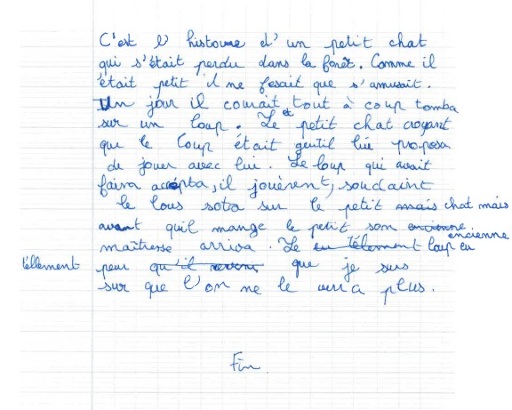 C'est l'histoure d'un petit chat
qui s'était perdu dans la forêt. Comme il
était petit il ne fesait que s'amusait.
Un jour il courait tout à coup tomba
sur un loup. Le petit chat croyant
que le Loup était gentil lui proposa
de jouer avec lui. Le loup qui avait
faim accépta, il jouèrent, soudaint
le lous sota sur le petit mais chat mais
avant quil mange le petit son encienne encienne
maîtresse arriva. Le eu tèlement loup eu
tèllement peur qu'il que je suis
sur que l'on ne le verra plus.
Fin